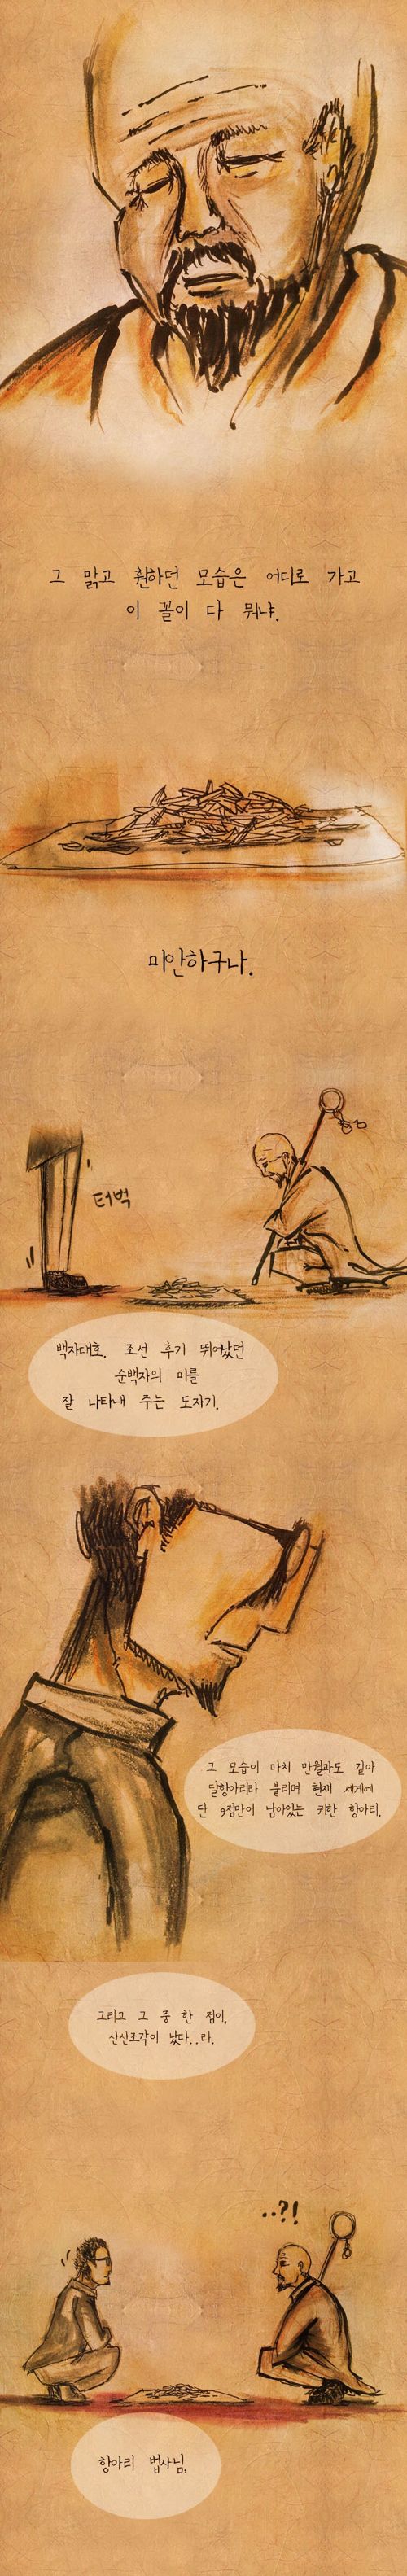 그 맑고 훤하던 모습은 어디로 가고
이 꼴이 다 뭐냐.
미안하구나.
터벅
백자대호. 조선 후기 뛰어났던
순백자의 미를
잘 나타내 주는 도자기.
그 모습이 마치 만월과도 같아
달항아리라 불리며 현재 세계에
단 9점만이 남아있는 귀한 항아리.
그리고 그 중 한 점이,
산산조각이 났다..라.
..?!
항아리 법사님,